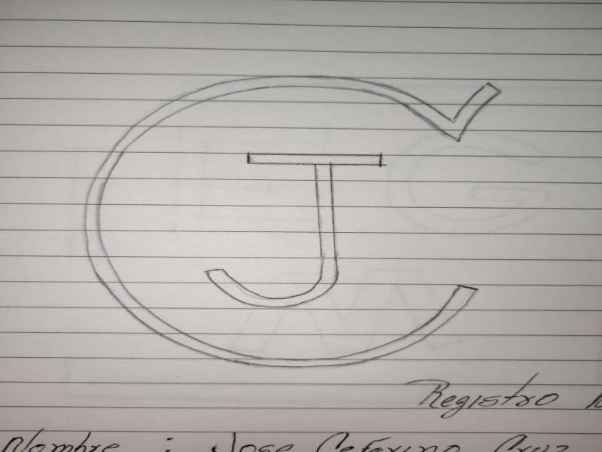 C
J
Registro
Nombre : Jose Ceferino Cruz